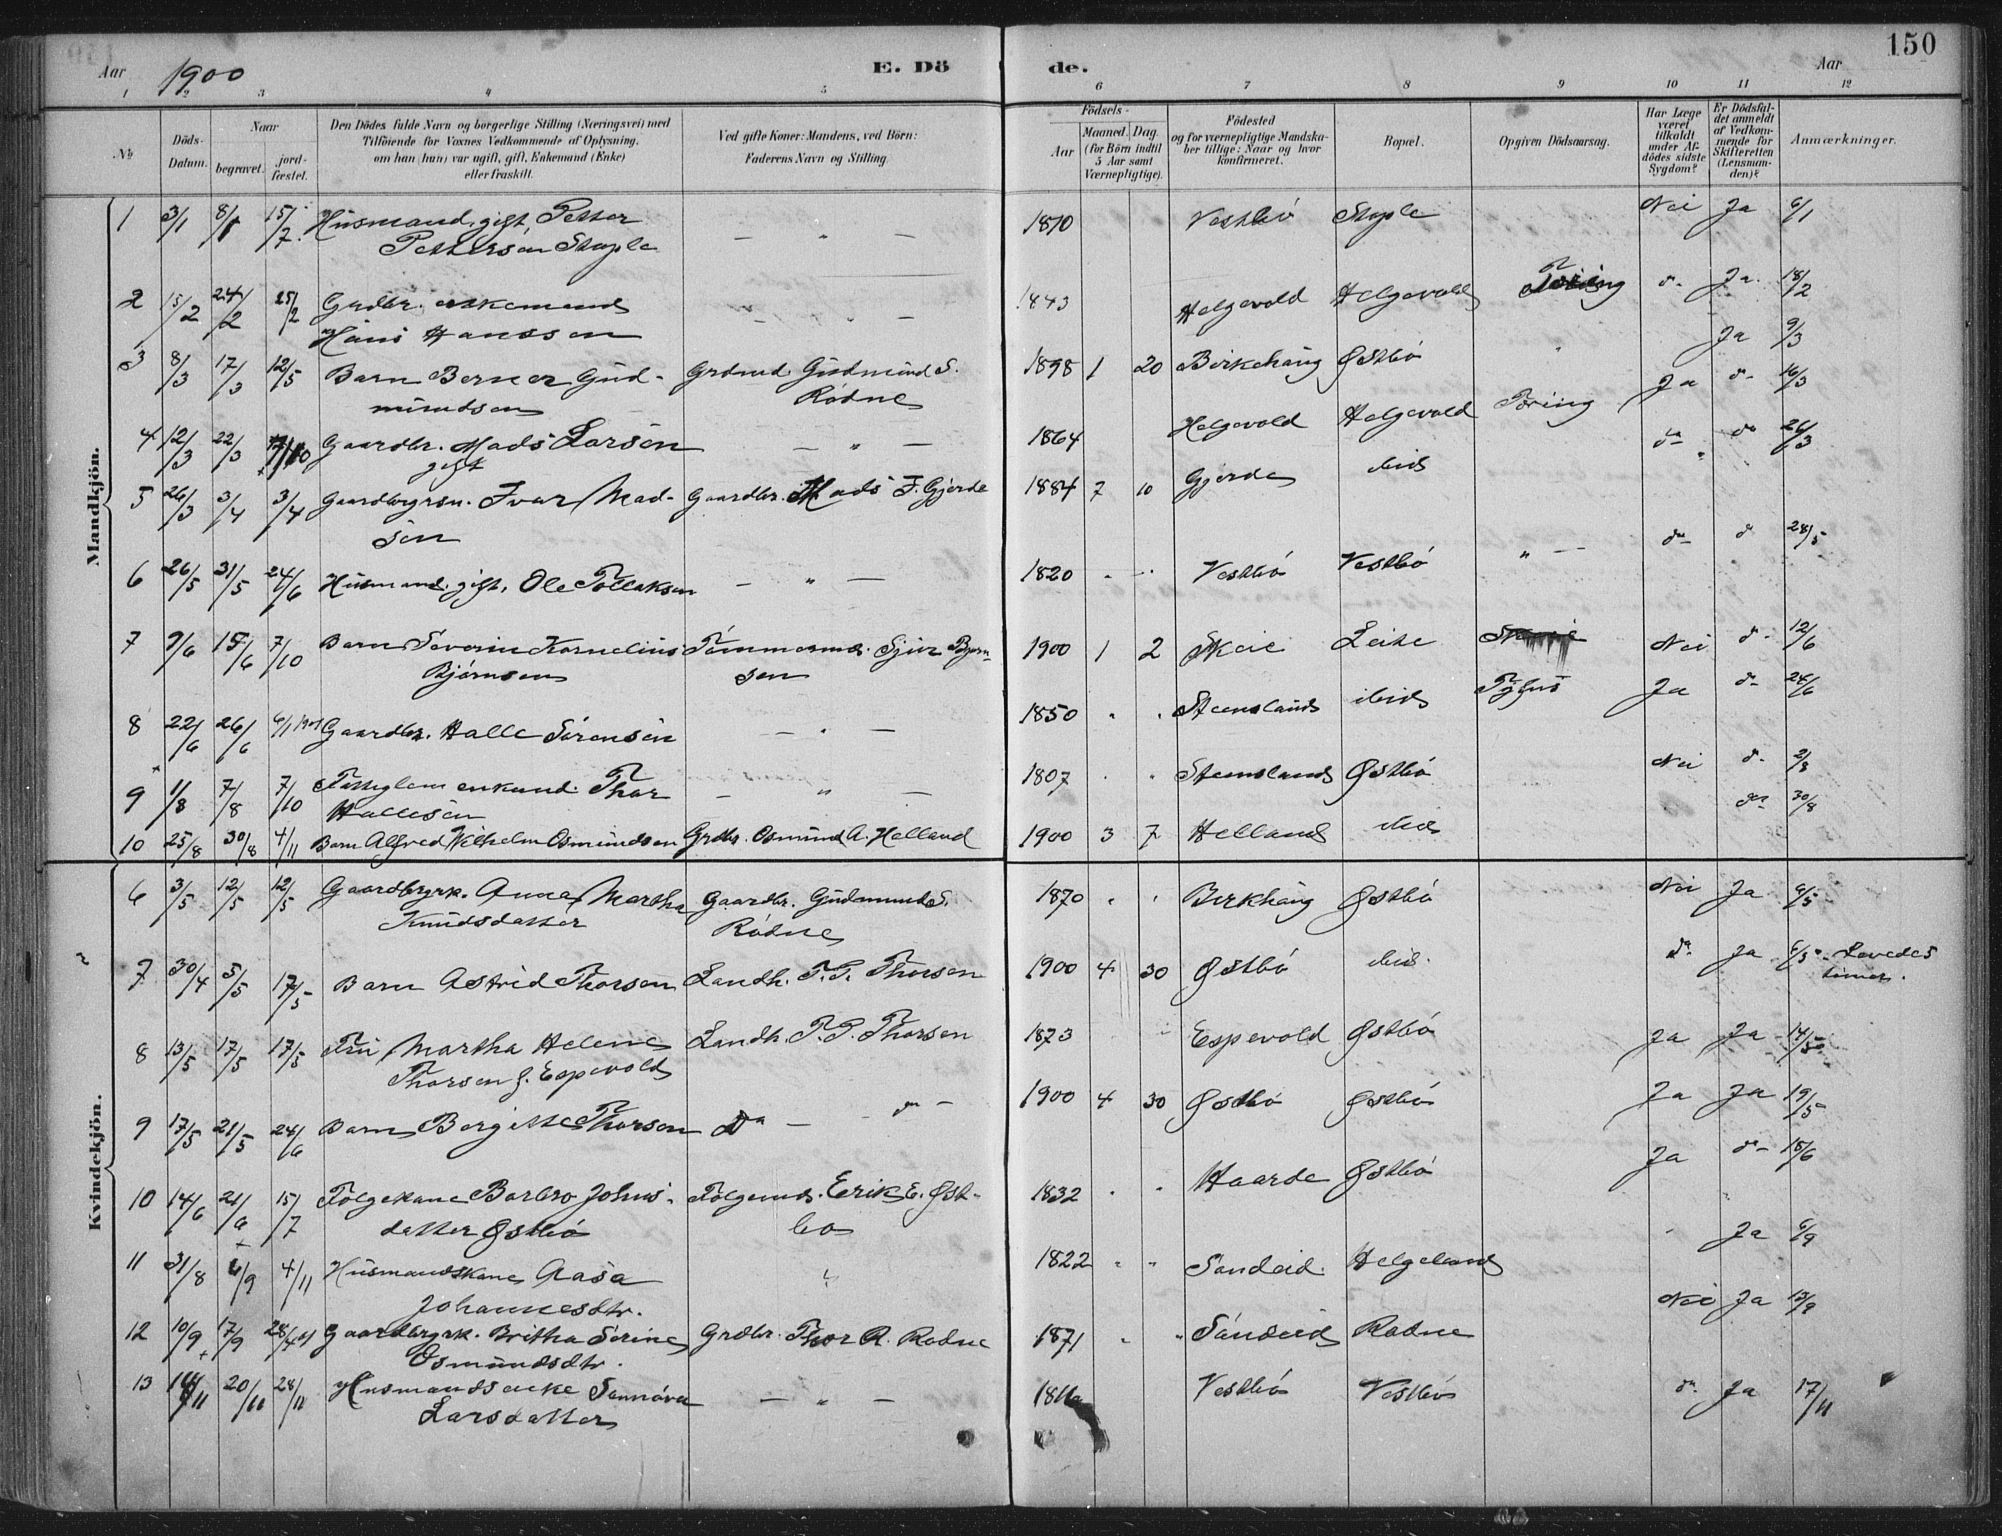 150
Aar 1900 E. Dö de. Aar
1 2 3 4 5 6 7 8 9 10 11 12
No. Döds-Datum. Naar begravet. jord-fæstet. Den Dödes fulde Navn og borgerlige Stilling (Næringsvei) med Tilföiende for Voxnes Vedkommende af Oplysning, om han (hun) var ugift, gift, Enkemand (Enke) eller fraskilt. Ved gifte Koner: Mandens, ved Börn: Faderens Navn og Stilling. Födsels- Aar Maaned. Dag. (for Börn indtil 5 Aar samt Værnepligtige). Födested og for værnepligtige Mandskaber tillige: Naar og hvor konfirmeret. Bopæl. Opgiven Dödsaarsag. Har Læge været tilkaldt under Afdödes sidste Sygdom? Er Dödsfaldet anmeldt af Vedkommende for Skifteretten (Lensmanden)? Anmærkninger.
Mandkjön.
1 3/1 8/1 15/7 Husmand, gift, Petter — " — 1870 Vestbö Stople Nei Ja 6/1
Pettersen Stople
2 15/2 24/2 25/2 Grdbr. enkemand — " — 1843 Helgevold Helgevold Tæring do Ja 18/2
Hans Hanssen
3 8/3 17/3 12/5 Barn Berner Gud- Grdmd. Gudmund S. 1898 1 20 Birkehaug Østbö Ja 9/3
mundsen Rödne
4 12/3 22/3 7/10 Gaardbr. Mads Larsen — " — 1864 Helgevold Helgevold Tæring Ja do 16/3
gift
5 26/3 3/4 3/4 Gaardbrgrsn. Ivar Mad- Gaardbr. Mads I. Gjerde 1884 7 10 Gjerde ibid do do 26/3
sen
6 26/5 31/5 24/6 Husmand. gift. Ole Tollaksen — " — 1820 Vestbö Vestbö " — do d 28/5
7 9/6 15/6 7/10 Barn Severin Kornelius Tömmermd. Sjur Bjørn- 1900 1 2 Skeie Leite Nei do 12/6
Bjørnsen sen
8 22/6 26/6 6/1 1901 Gaardbr. Halle Sørensen — " — 1850 Stensland ibid Tyfus Ja do 24/6
9 1/8 7/8 7/10 Fattiglem enkemd. Thor — " — 1807 Stensland Østbö Nei do 2/8
Hallesen
10 25/8 30/8 4/11 Barn Alfred Vilhelm Osmundsen Grdbr. Osmund A. Helland 1900 3 7 Helland ibid do 30/8
Kvindekjön.
6 3/5 12/5 12/5 Gaardbrgrk. Anna Martha Gaardbr. Gudmund S. 1870 Birkhaug Østbö Nei Ja 6/5
Knudsdatter Rödne
7 30/4 5/5 17/5 Barn Astrid Thorsen Landh. T. T. Thorsen 1900 4 30 Østbö ibid. do Ja Levede 5
timer.
8 13/5 17/5 17/5 Fru Martha Helene Landh. T. T. Thorsen 1873 Espevold Østbö Ja Ja 14/5
Thorsen f. Espevold
9 17/5 21/5 24/6 Barn Bergitte Thorsen Do — do — 1900 4 30 Østbö Østbö Ja Ja 19/5
10 14/6 21/6 15/7 Følgekone Barbro Johns- Følgemd. Eerik E. Øst- 1832 Haarde Østbö Ja do 15/6
datter Østbö bö
11 31/8 6/9 4/11 Husmandskone Aasa " 1822 Sandeid Helgeland Ja 6/9
Johannesdtr.
12 10/9 17/9 28/4 01 Gaardbrgrk. Britha Serine Grdbr. Thor R. Rödne 1871 Sandeid Rödne Nei Ja 13/9
Osmundsdtr.
13 14/11 20/11 28/11 Husmandsenke Sunnöva — " — Vestbö Vestbö do Ja 17/11
Larsdatter